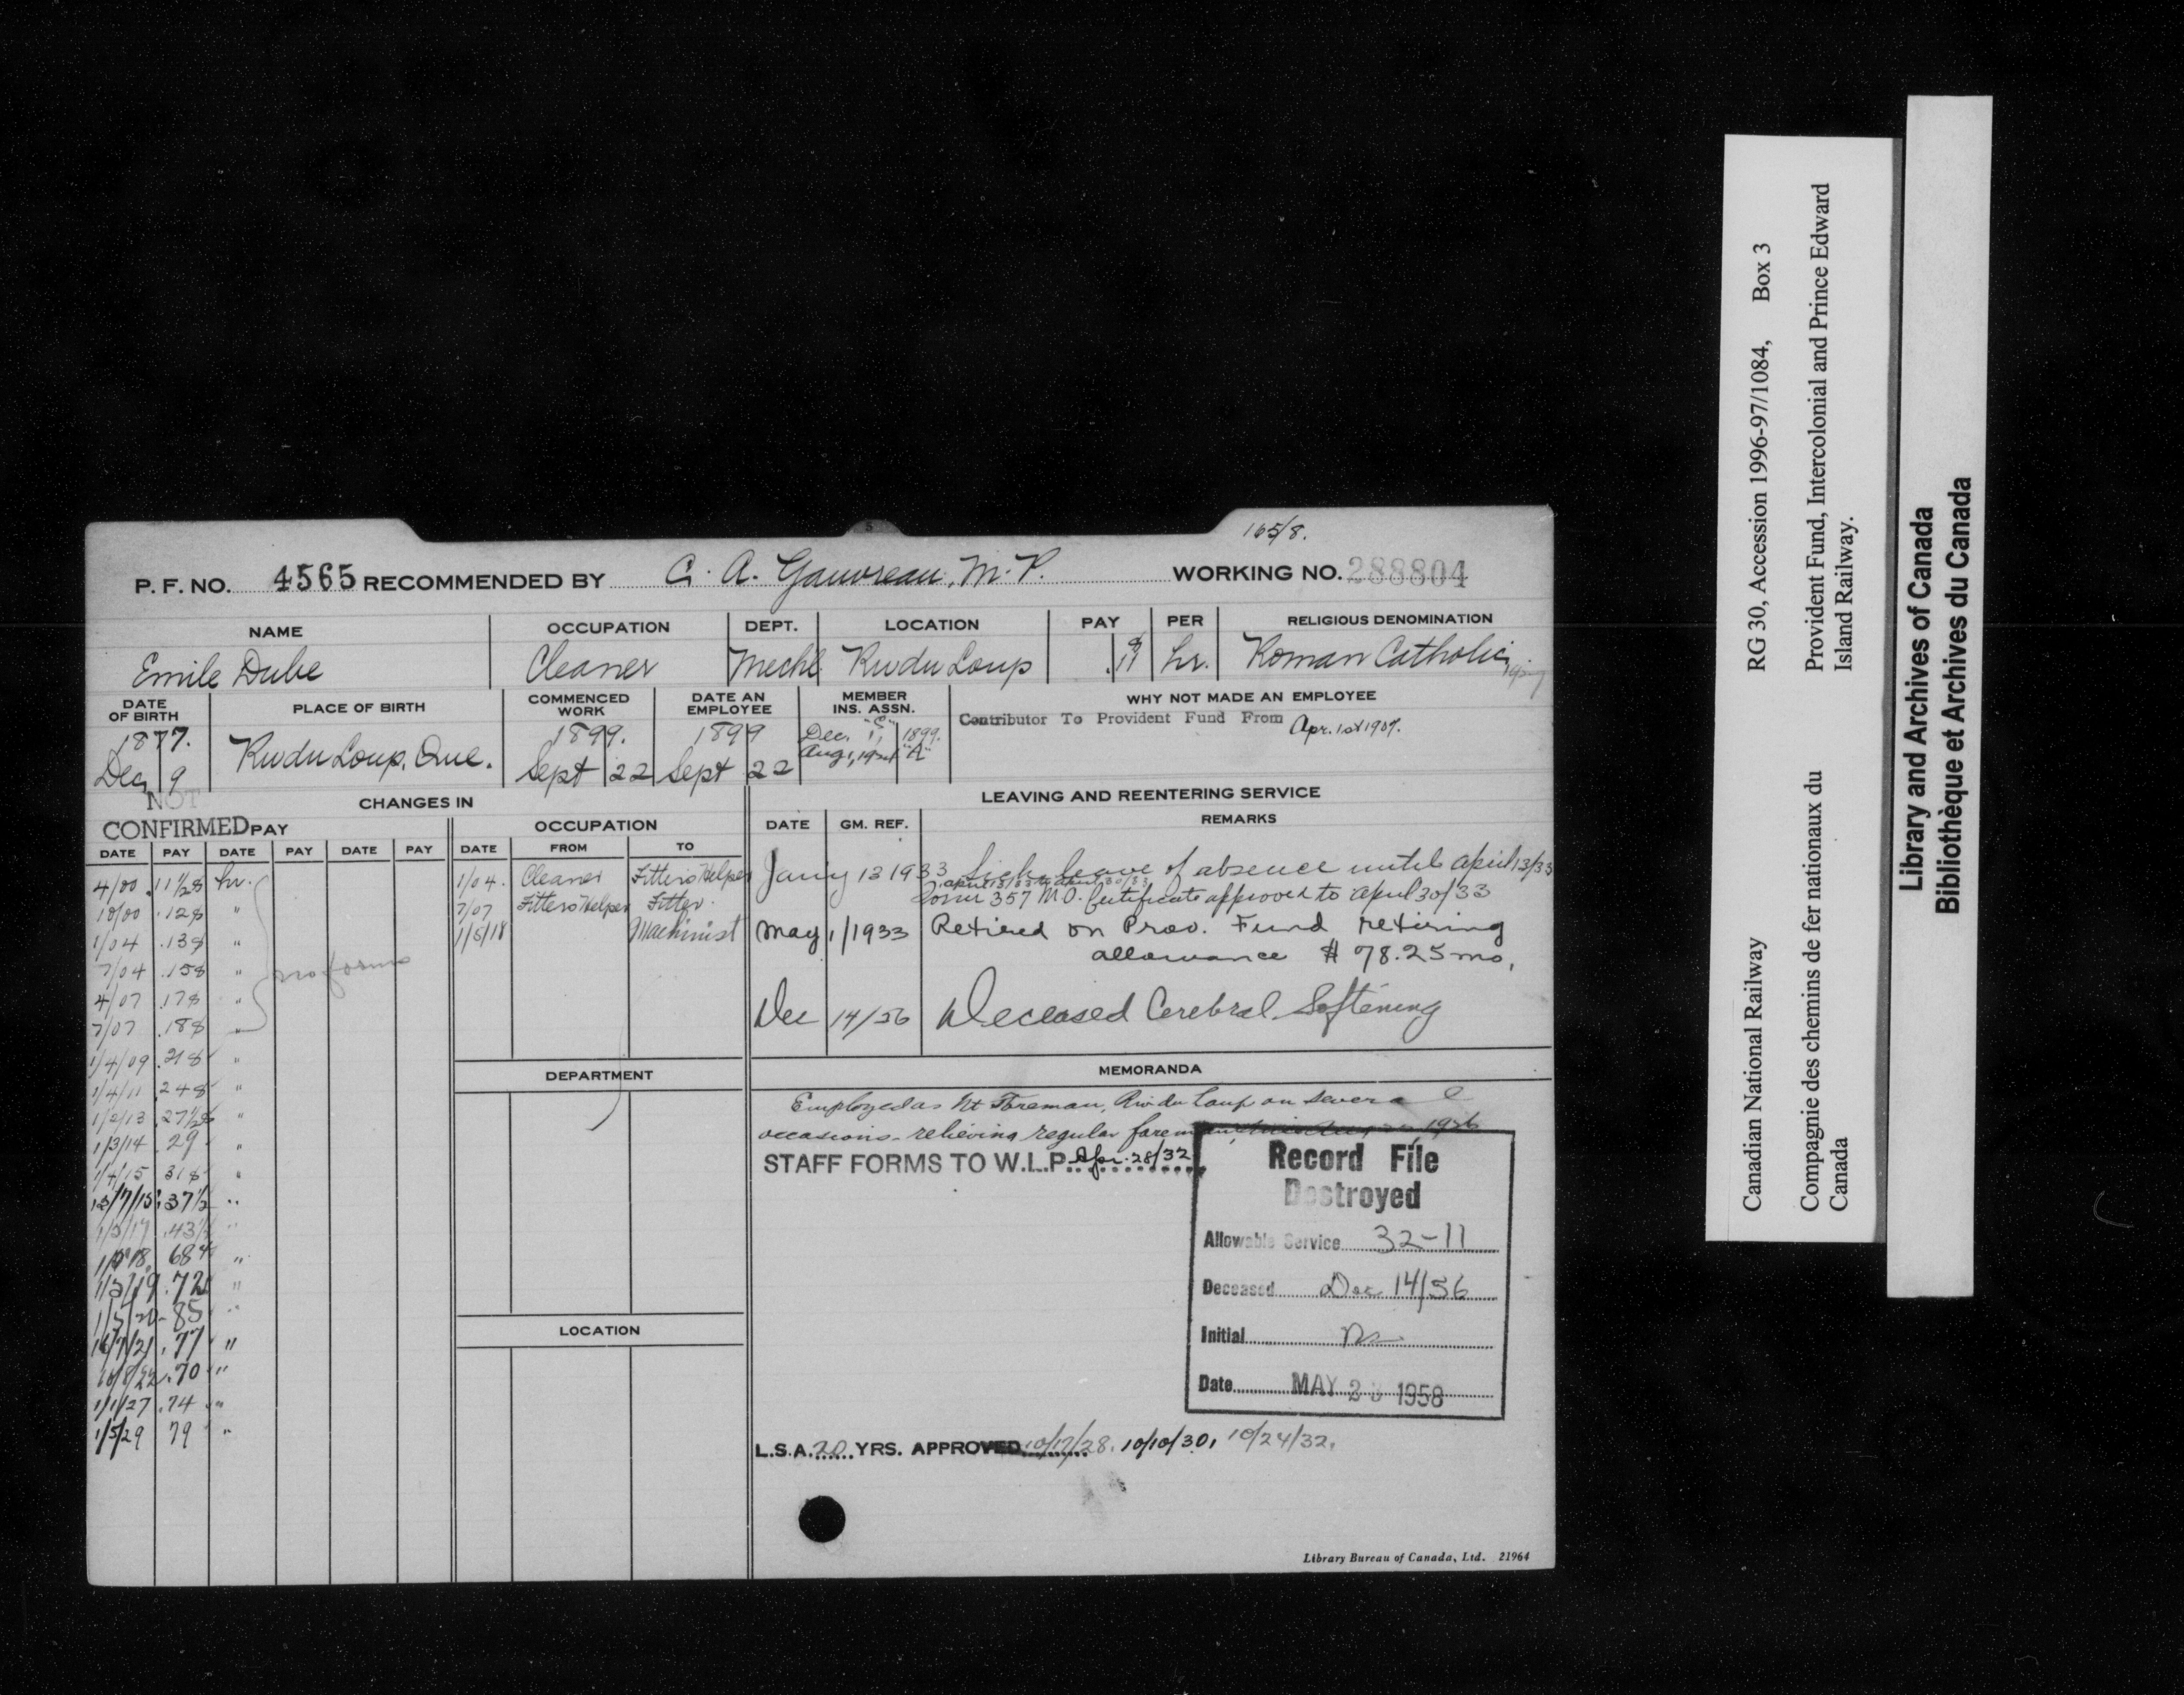 165/8.
P. F. NO. 4565 RECOMMENDED BY C. A. Gauvreau, M.P. WORKING NO. 288804
NAME OCCUPATION DEPT. LOCATION PAY PER RELIGIOUS DENOMINATION
Emile Dube Cleaner Mechl Rivdu Loup .11 hr. Roman Catholic
DATE OF BIRTH PLACE OF BIRTH COMMENCED WORK DATE AN EMPLOYEE MEMBER INS. ASSN. WHY NOT MADE AN EMPLOYEE
1877. Dec 9 Rivdu Loup, Que. 1899. Sept 22 1899 Sept 22 Dec. 1, "C" 1899. "A"
Contributor To Provident Fund From Apr. 1st 1907.
NOT CONFIRMED
CHANGES IN
PAY
DATE PAY DATE PAY DATE PAY
4/00 .11 1/2¢ hr.
10/00 .12¢ "
1/04 .13¢ "
7/04 .15¢ "
4/07 .17¢ "
7/07 .18¢ "
no forms
1/4/09 .21¢ "
1/4/11 24¢ "
1/2/13 .27 1/2¢ "
1/3/14 .29 "
1/4/15 31¢ "
.37 1/2 "
1/3/17 .43 "
68¢ "
.72 "
1/5/20 - 85 "
16/7/21 .77 "
.70 "
1/1/27 .74 "
1/5/29 79 "
OCCUPATION
DATE FROM TO
1/04. Cleaner Fitters Helper
7/07 Fitters Helper Fitter.
1/5/18 Machinist
DEPARTMENT
LOCATION
LEAVING AND REENTERING SERVICE
DATE GM. REF. REMARKS
Jany 13 1933 Sick leave of absence until April 13/33
April 13/33 to April 30/33
Form 357 M.O. Certificate approved to April 30/33
May 1/1933 Retired on Prov. Fund retiring
allowance $ 78.25 mo.
Dec 14/56 Deceased Cerebral Softening
MEMORANDA
Employed as Nt Foreman, Riv du Loup on several
occasions - relieving regular foreman 1926
STAFF FORMS TO W.L.P. Apr. 28/32
Record File
Destroyed
Allowable Service 32-11
Deceased Dec 14/56
Initial
Date MAY 1958
L.S.A. 20 YRS. APPROVED 10/17/28. 10/10/30, 10/24/32.
Library Bureau of Canada, Ltd. 21964
Canadian National Railway RG 30, Accession 1996-97/1084, Box 3
Compagnie des chemins de fer nationaux du Provident Fund, Intercolonial and Prince Edward
Canada Island Railway.
Library and Archives of Canada
Bibliothèque et Archives du Canada